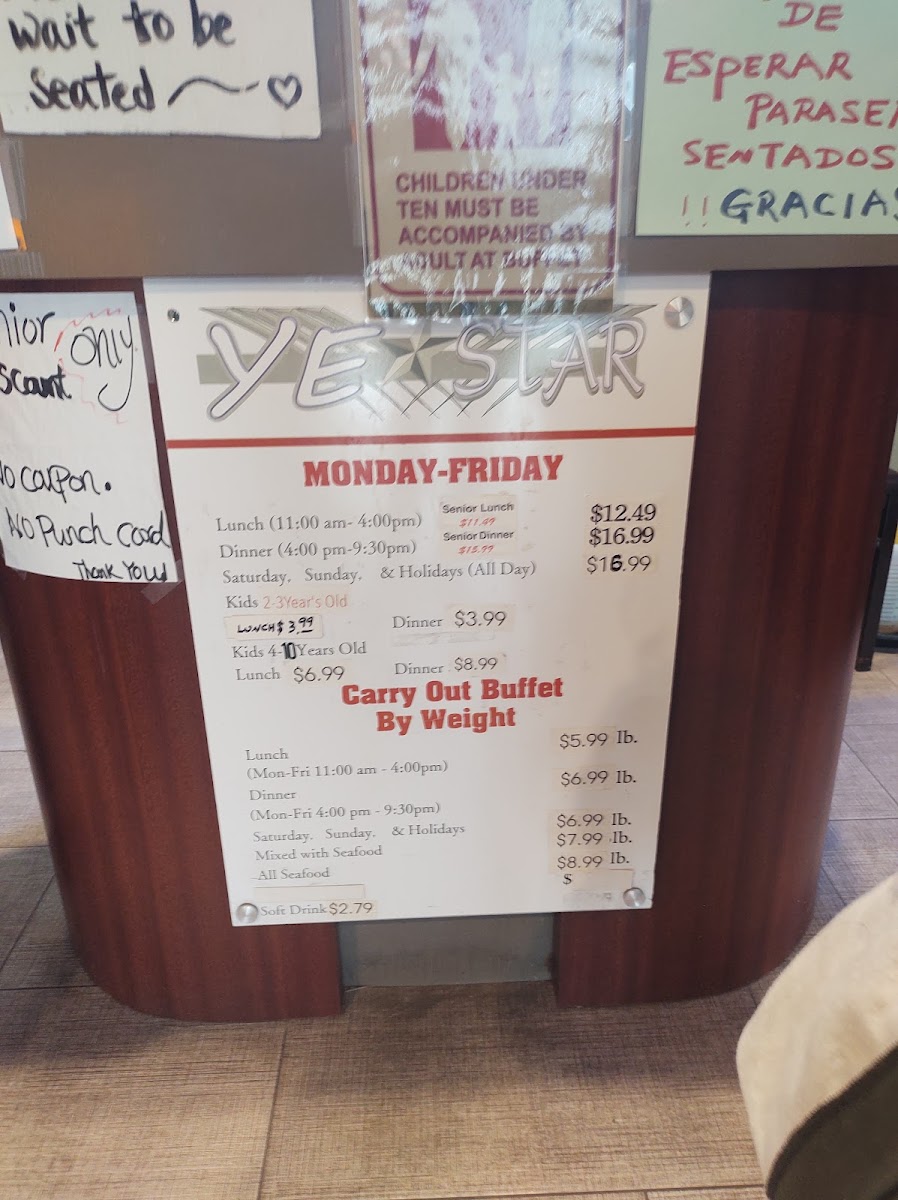 wait to be
seated
CHILDREN UNDER
TEN MUST BE
ACCOMPANIED BY
ADULT AT BUFFET
DE
ESPERAR
PARASER
SENTADOS
!!GRACIAS
only
No coupon.
No Punch Card
Thank You!
YE STAR
MONDAY-FRIDAY
Lunch (11:00 am- 4:00pm) Senior Lunch $11.49 $12.49
Dinner (4:00 pm-9:30pm) Senior Dinner $15.99 $16.99
Saturday, Sunday, & Holidays (All Day) $16.99
Kids 2-3Year's Old
LUNCH $3.99 Dinner $3.99
Kids 4-10Years Old
Lunch $6.99 Dinner $8.99
Carry Out Buffet
By Weight
Lunch $5.99 lb.
(Mon-Fri 11:00 am - 4:00pm)
Dinner $6.99 lb.
(Mon-Fri 4:00 pm - 9:30pm)
Saturday, Sunday, & Holidays $6.99 lb.
Mixed with Seafood $7.99 lb.
All Seafood $8.99 lb.
$
Soft Drink $2.79